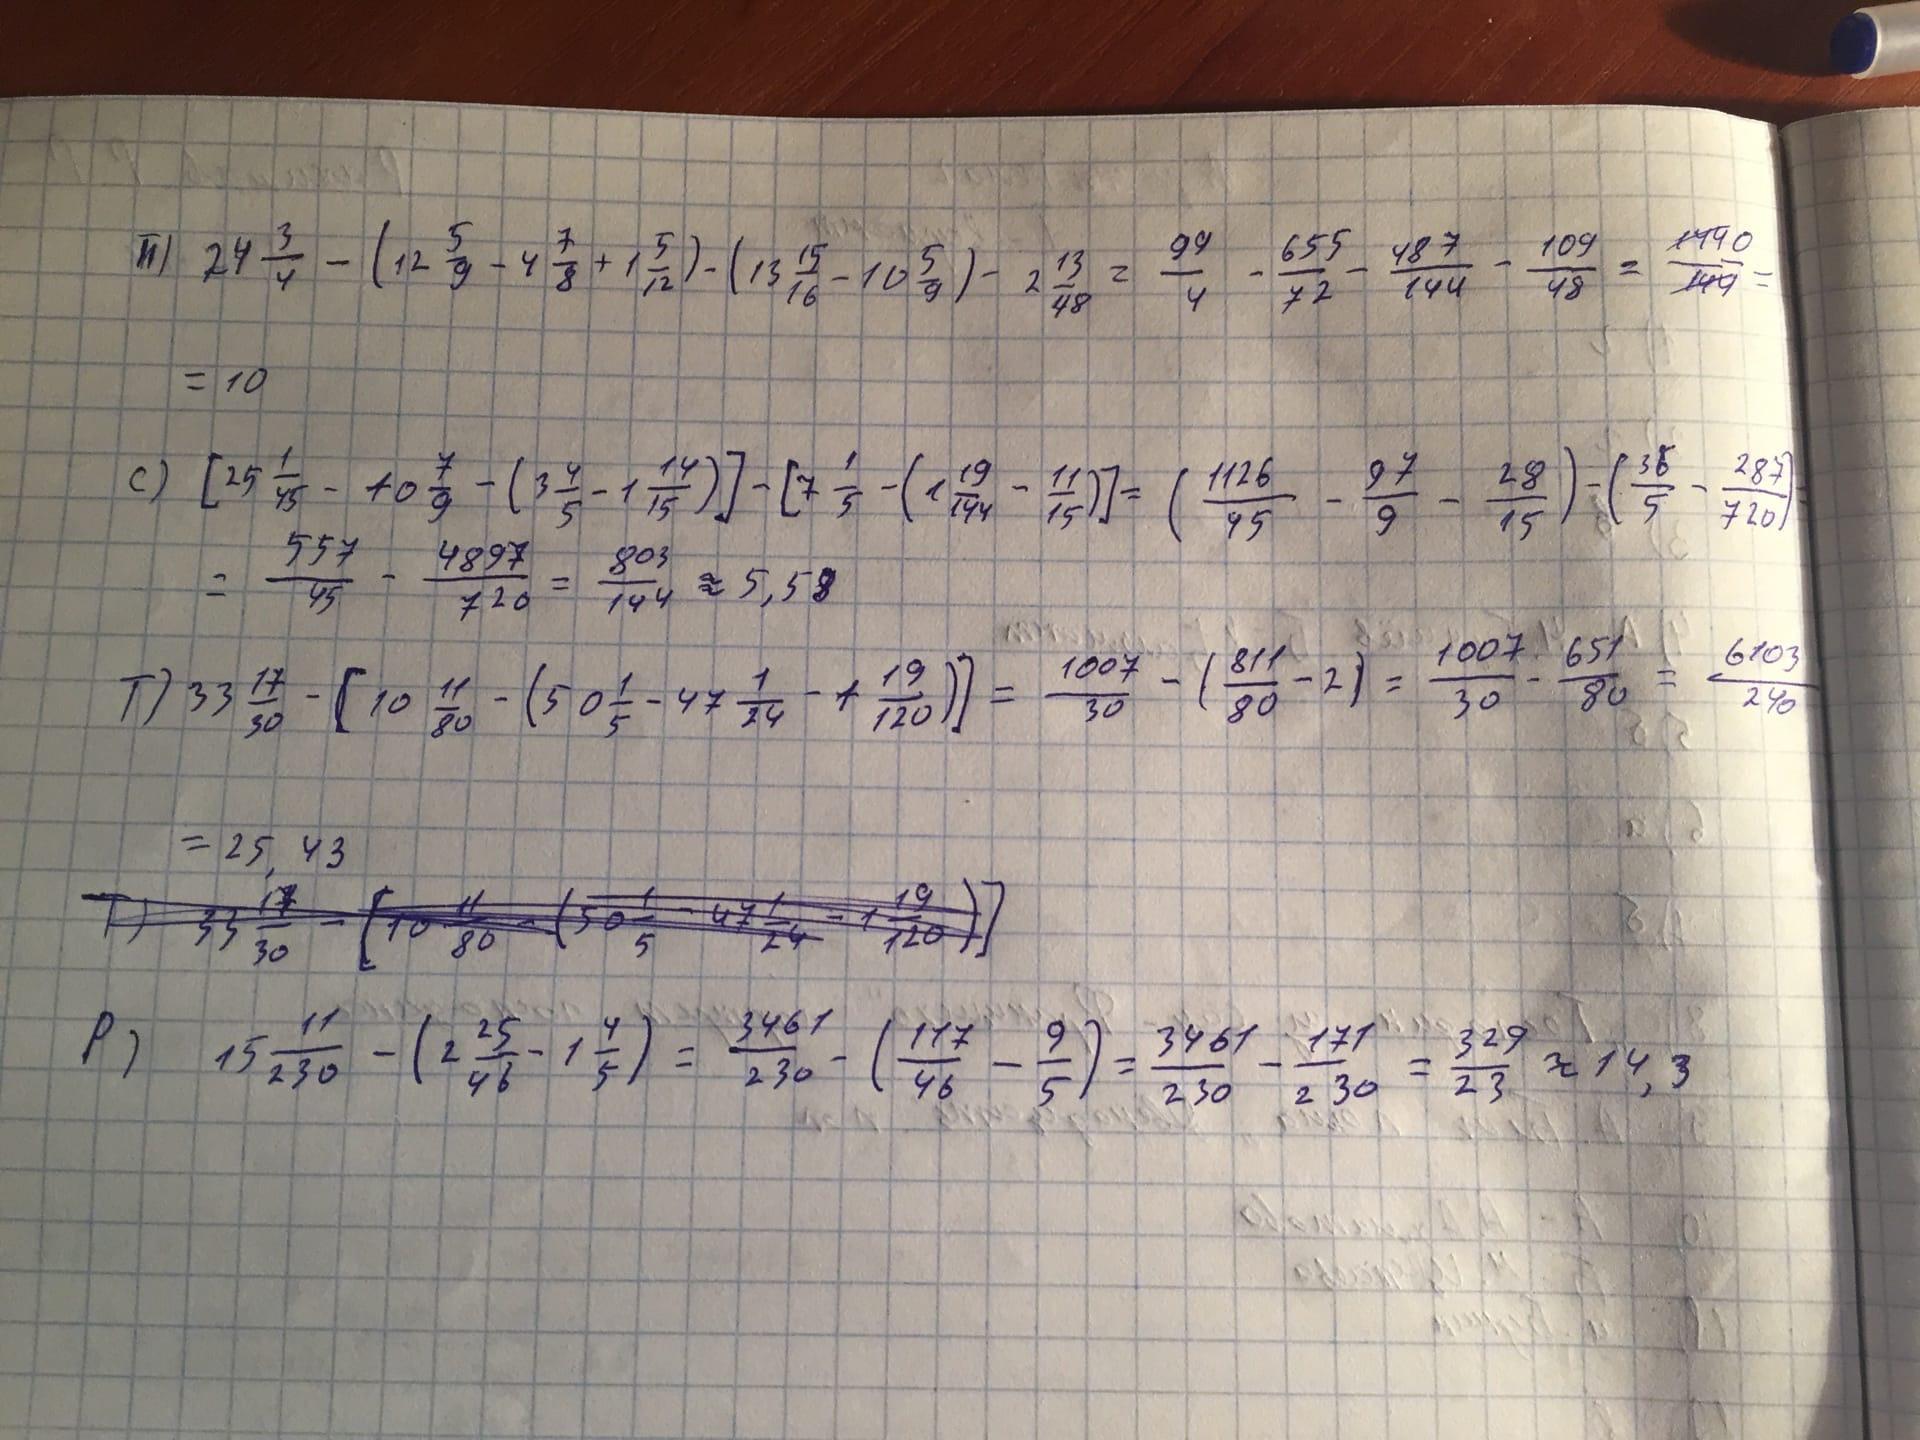 П) 24 3/4 - (12 5/9 - 4 7/8 + 1 5/12) - (13 15/16 - 10 5/9) - 2 13/48 = 99/4 - 655/72 - 487/144 - 109/48 = 1440/144 =
= 10
С) [25 1/45 - 10 7/9 - (3 4/5 - 1 14/15)] - [7 1/5 - (1 19/144 - 11/15)] = (1126/45 - 97/9 - 28/15) - (36/5 - 287/720) =
= 557/45 - 4897/720 = 803/144 ≈ 5,58
Т) 33 17/30 - [10 11/80 - (50 1/5 - 47 1/24 - 1 19/120)] = 1007/30 - (811/80 - 2) = 1007/30 - 651/80 = 6103/240
= 25,43
Т) 33 17/30 - [10 11/80 - (50 1/5 - 47 1/24 - 1 19/120)]
Р) 15 11/230 - (2 25/46 - 1 4/5) = 3461/230 - (117/46 - 9/5) = 3461/230 - 171/230 = 329/23 ≈ 14,3